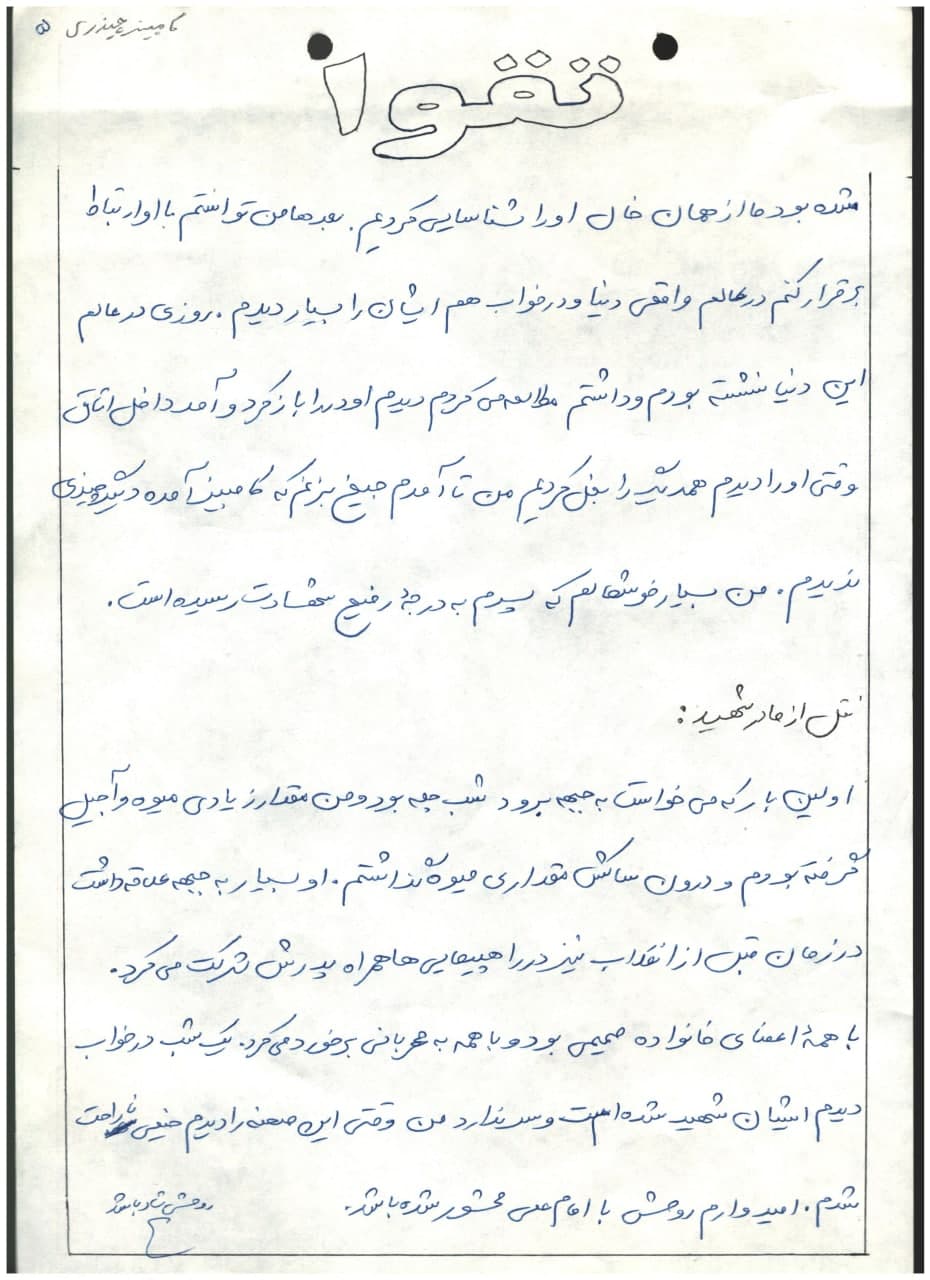 کامبیز چیذری ۵
تقوا
شده بود ما از همان خال او را شناسایی کردیم. بعدها من توانستم با او ارتباط
برقرار کنم در عالم واقعی دنیا و در خواب هم ایشان را بسیار دیدم. روزی در عالم
این دنیا نشسته بودم و داشتم مطالعه می کردم دیدم او در را باز کرد و آمد داخل اتاق
وقتی او را دیدم همدیگر را بغل کردیم من تا آمدم جیغ بزنم که کامبیز آمده دیگر چیزی
ندیدم. من بسیار خوشحالم که پسرم به درجهٔ رفیع شهادت رسیده است.
نقل از مادر شهید:
اولین بار که می خواست به جبهه برود شب چله بود و من مقدار زیادی میوه و آجیل
گرفته بودم و درون ساکش مقداری میوه گذاشتم. او بسیار به جبهه علاقه داشت
در زمان قبل از انقلاب نیز در راهپیمایی ها همراه پدرش شرکت می کرد.
با همهٔ اعضای خانواده صمیمی بود و با همه به مهربانی برخورد می کرد. یک شب در خواب
دیدم ایشان شهید شده است و سر ندارد من وقتی این صحنه را دیدم خیلی ناراحت
شدم. امیدوارم روحش با امام علی محشور شده باشد.
روحش شاد باشد